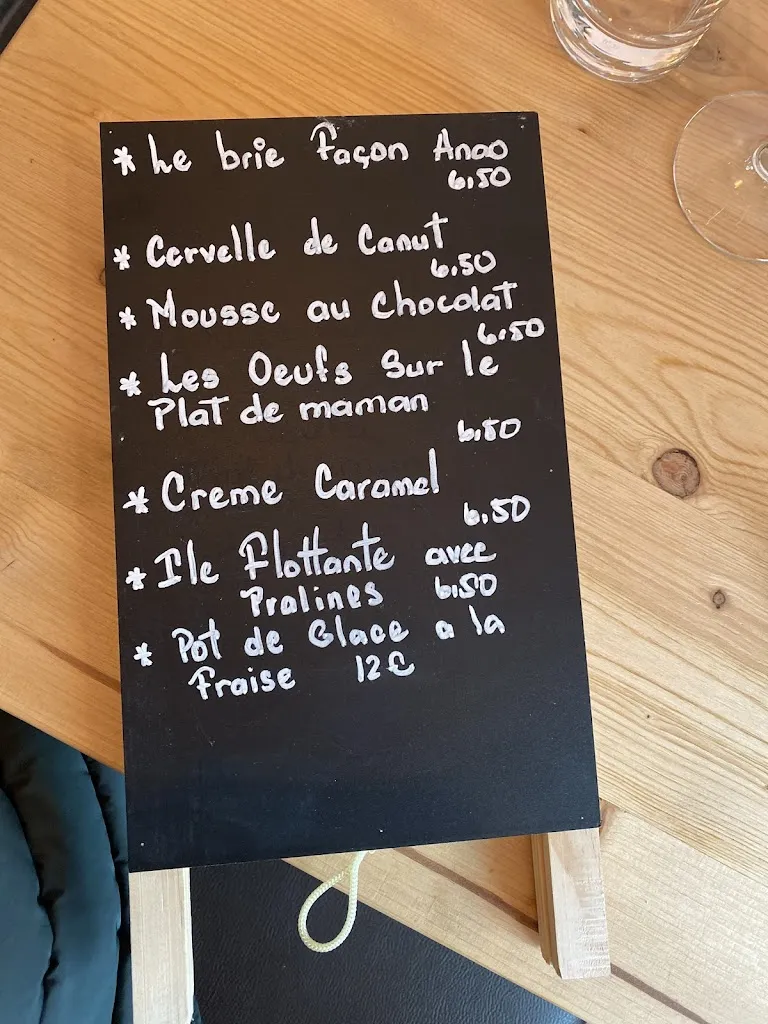 * Le brie Façon Anao
6.50
* Cervelle de Canut
6.50
* Mousse au chocolat
6.50
* Les Oeufs Sur le
Plat de maman
6.50
* Creme Caramel
6.50
* Ile Flottante avec
Pralines 6.50
* Pot de Glace a la
Fraise 12€